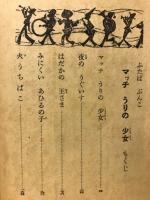 ふたば ぶんこ
マッチ うりの 少女 もくじ
マッチ うりの 少女
夜の うぐいす
はだかの 王さま
みにくい あひるの子
火うちばこ